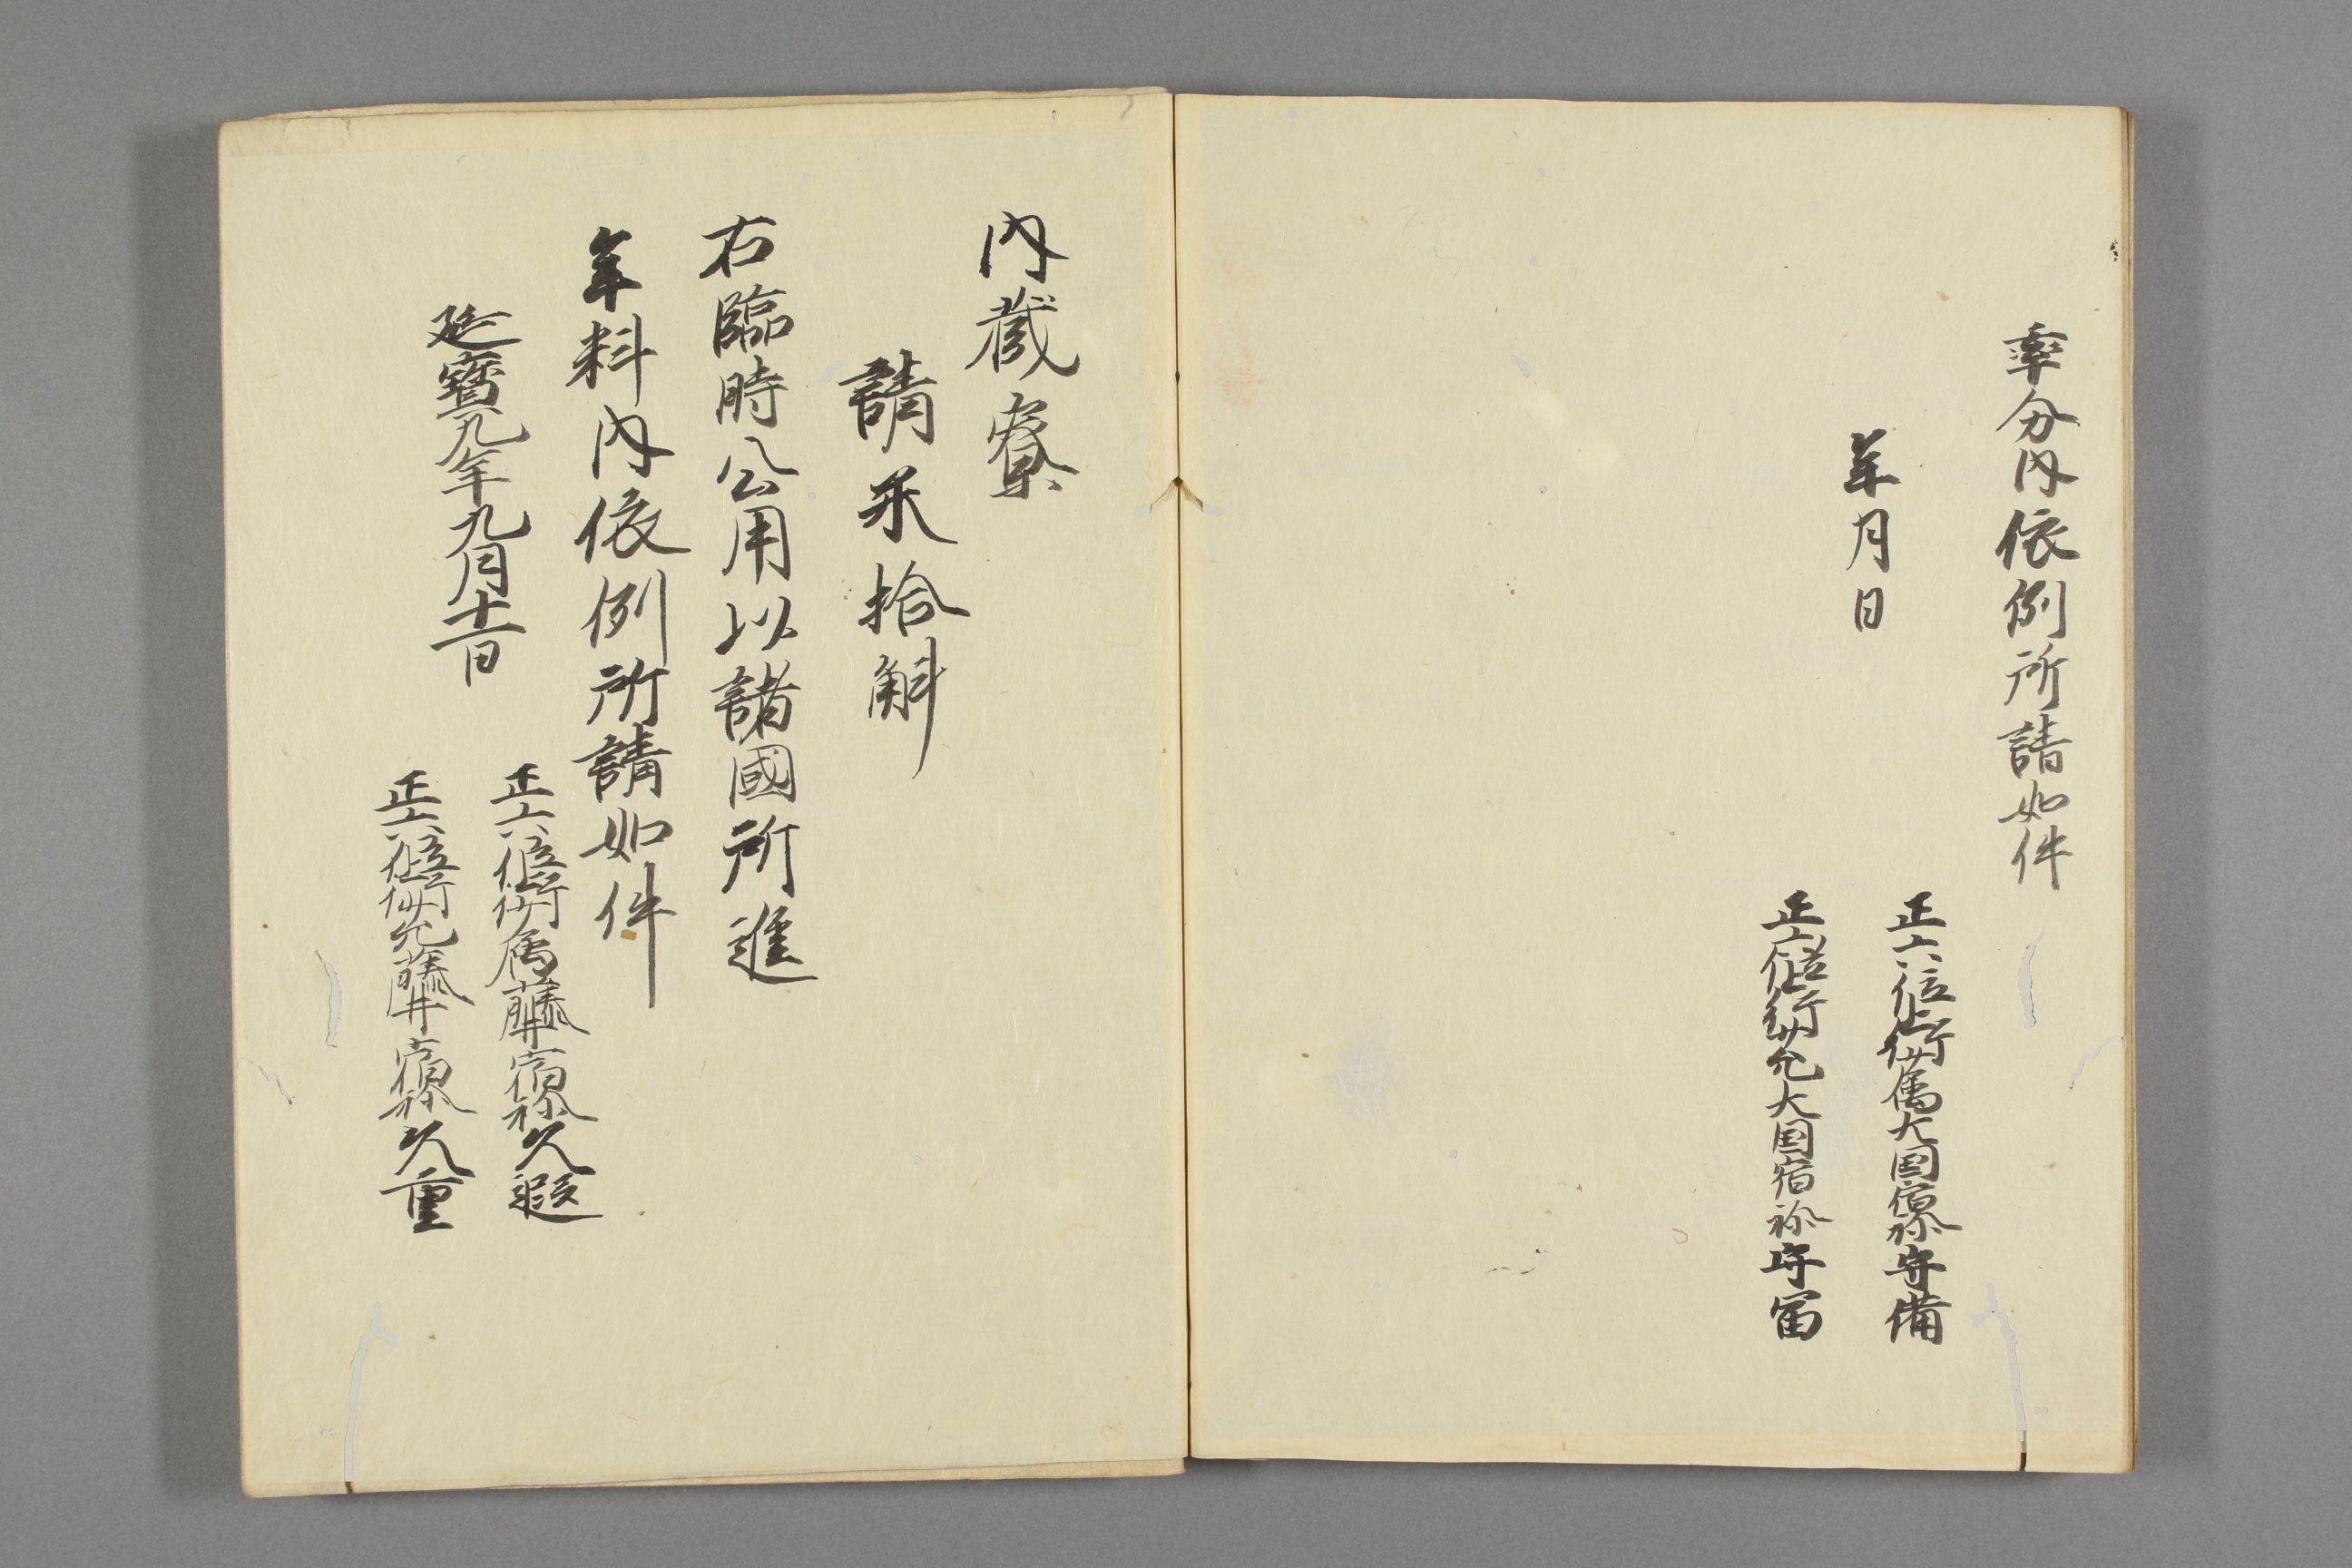 率分内依例所請如件
年月日
正六位上行少属大国宿祢守備
正六位上行少允大国宿祢守富
内蔵寮
請米拾斛
右臨時公用以諸國所進
年料内依例所請如件
延寶九年九月廿一日
正六位上行少属藤井宿祢久遐
正六位上行少允藤井宿祢久重